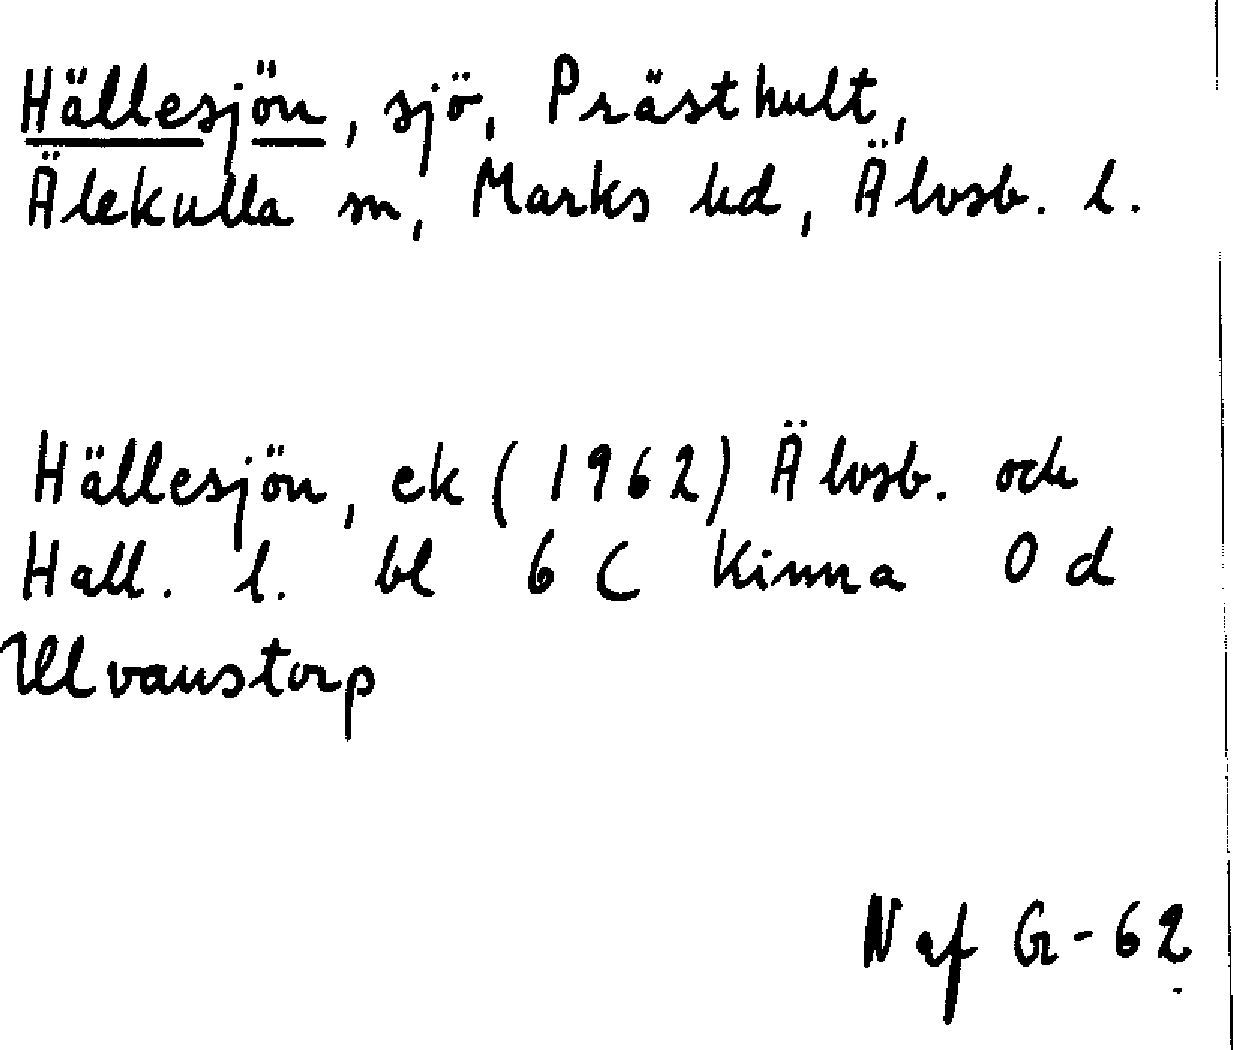 Hällesjön, sjö, Prästhult,
Älekulla sn, Marks hd, Älvsb. l.
Hällesjön, ek (1962) Älvsb. och
Hall. l. bl 6 C Kinna 0 d
Ulvanstorp
N af G-62